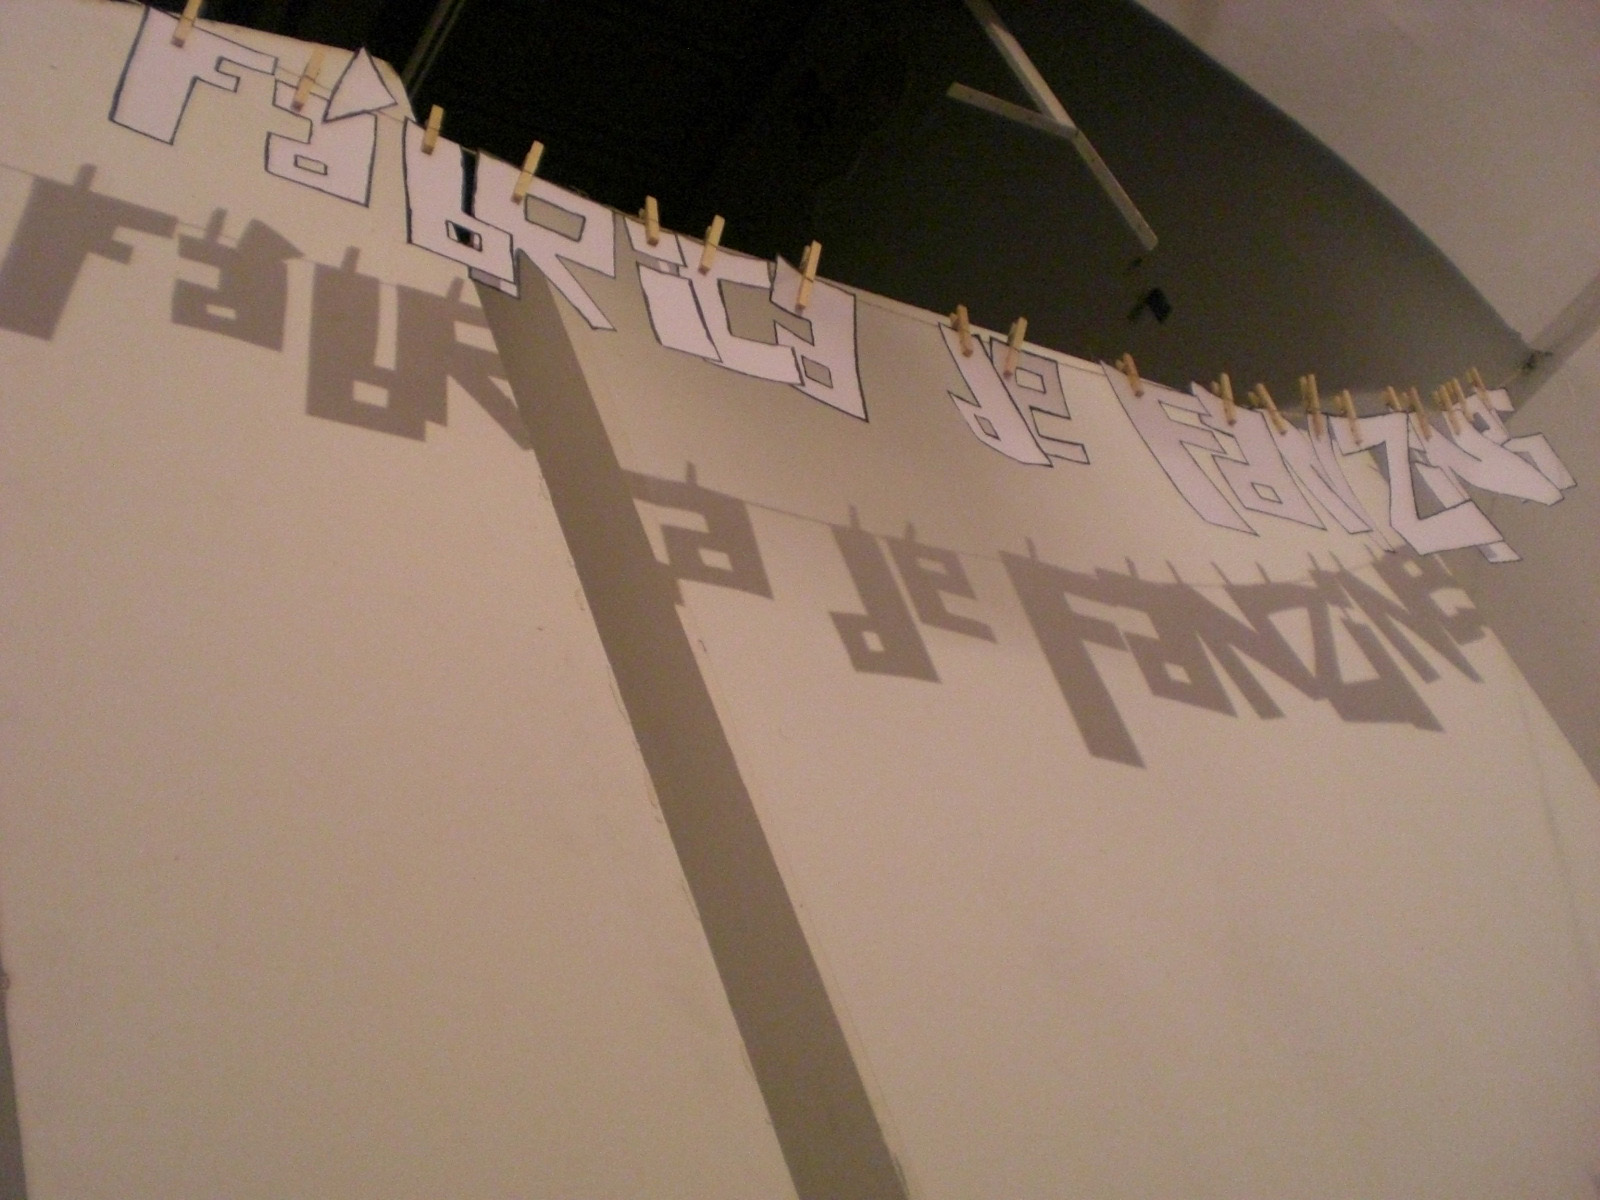 FábRica de FaNZiNe